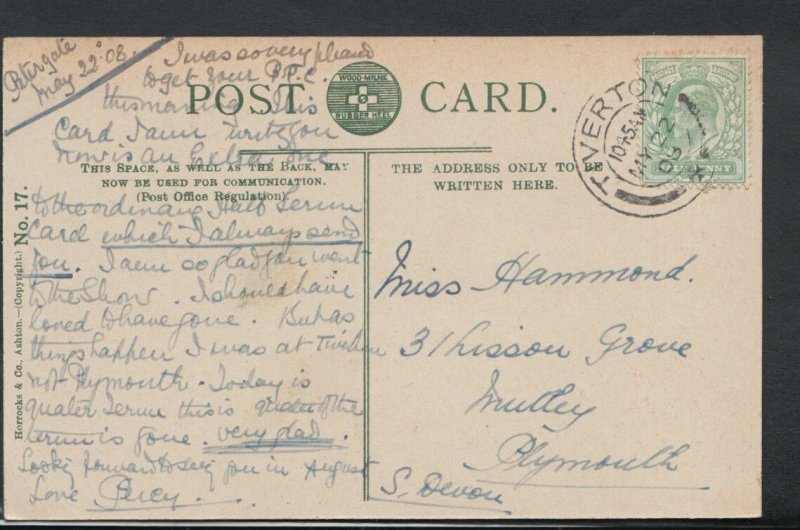 Petergate
May 22·08.
I was so very pleased
to get your P.P.C.
this morning. This
Card I am writing you
now is an Extra one
POST CARD.
WOOD-MILNE
RUBBER HEEL
THIS SPACE, AS WELL AS THE BACK, MAY
NOW BE USED FOR COMMUNICATION.
(Post Office Regulation).
to the ordinary Half Term
Card which I always send
you. I am so glad you went
to the Show. I should have
loved to have gone. But as
things happen I was at Tiverton
not Plymouth. Today is
quater Term this is
term is gone. very glad.
Looking forward to seeing you in August
Love Percy.
Horrocks & Co., Ashton.—(Copyright.) No. 17.
THE ADDRESS ONLY TO BE
WRITTEN HERE.
TIVERTON
10·45AM
MY 22
08
Miss Hammond.
31 Lisson Grove
Mutley
Plymouth
S. Devon